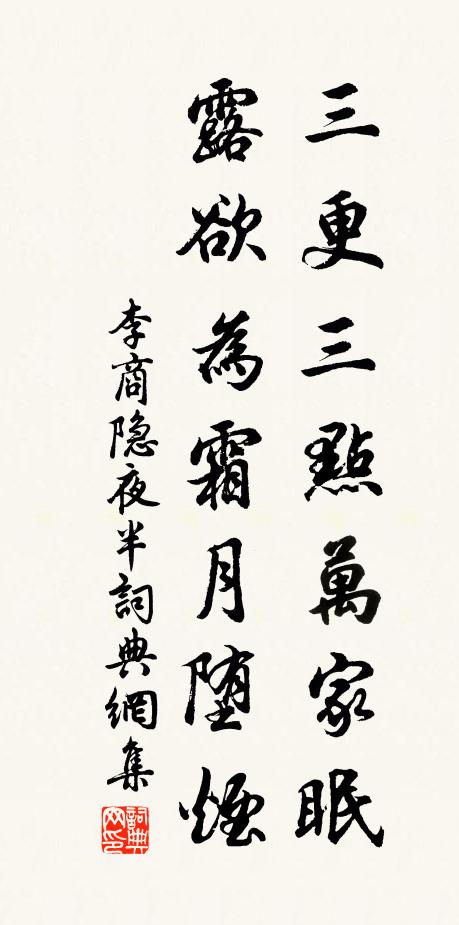 三更三點萬家眠
露欲為霜月堕煙
李商隐夜半詞典網集
詞典
网印